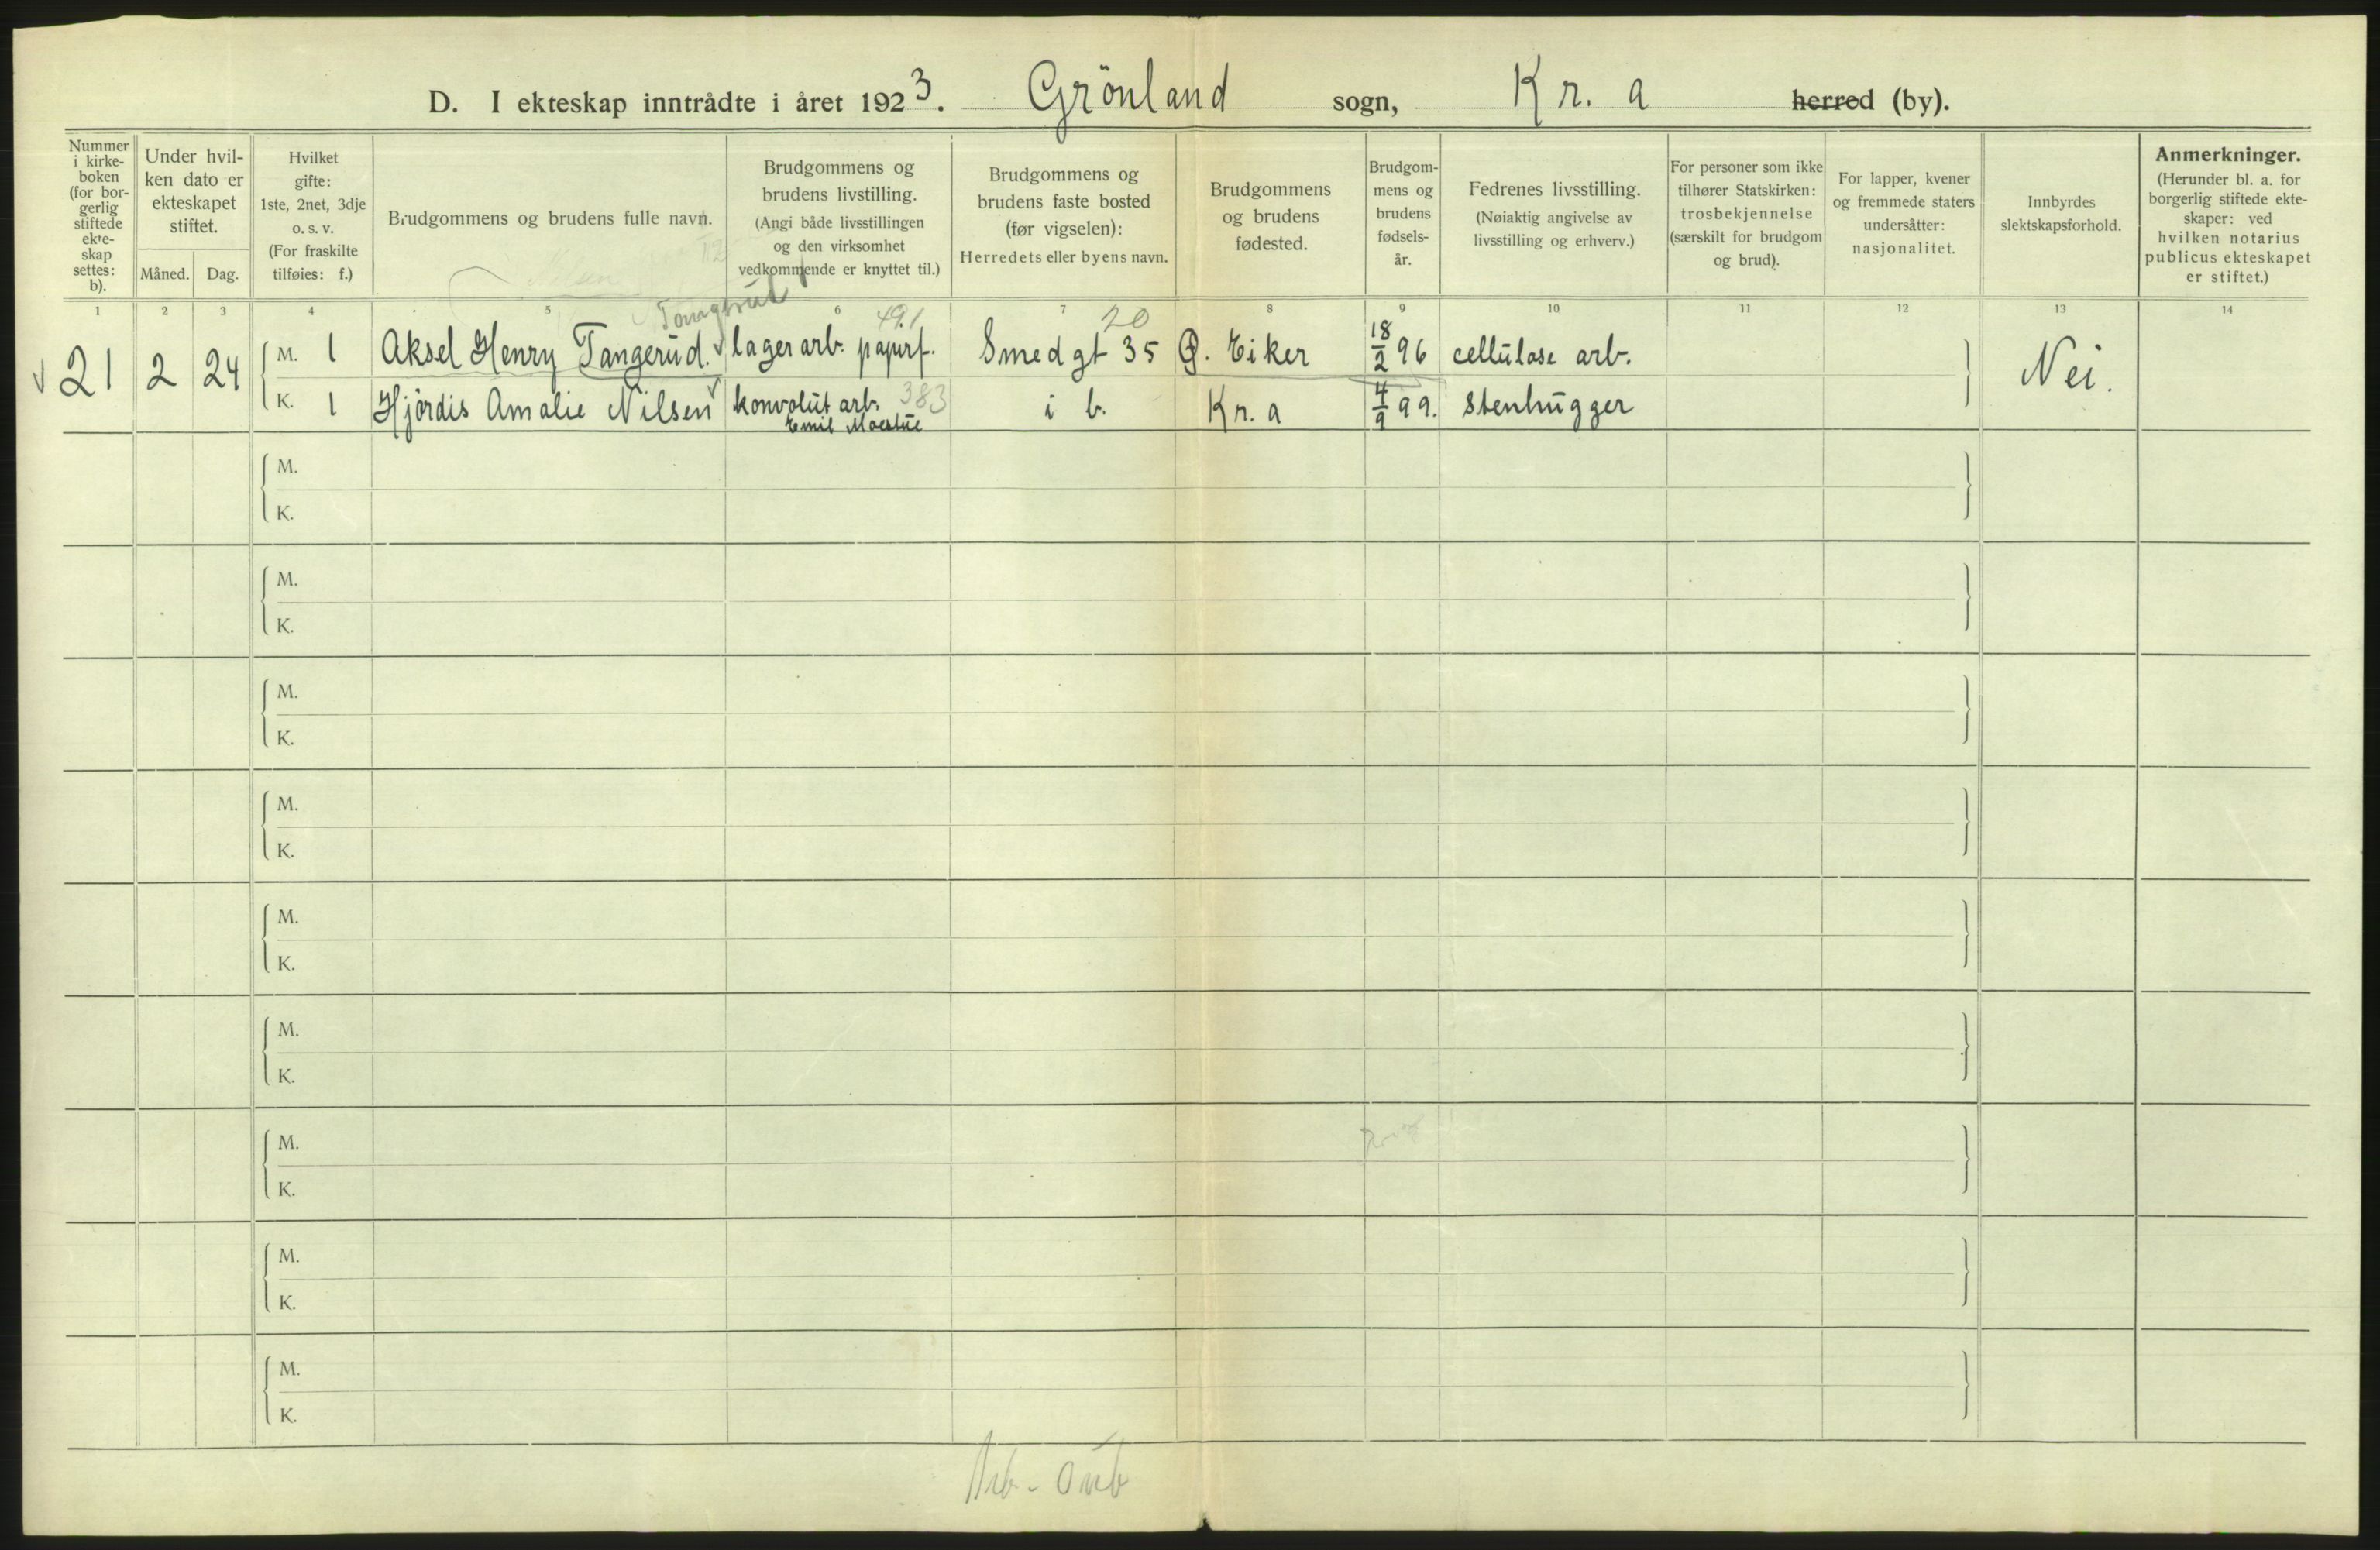 D. I ekteskap inntrådte i året 1923. Grönland sogn, Kr. a herred (by).
Nummer i kirke-boken (for bor-gerlig stiftede ekte-skap settes: b).
Under hvil-ken dato er ekteskapet stiftet.
Måned. Dag.
Hvilket gifte: 1ste, 2net, 3dje o. s. v. (For fraskilte tilføies: f.)
Brudgommens og brudens fulle navn.
Brudgommens og brudens livstilling. (Angi både livsstillingen og den virksomhet vedkommende er knyttet til.)
Brudgommens og brudens faste bosted (før vigselen): Herredets eller byens navn.
Brudgommens og brudens fødested.
Brudgom-mens og brudens fødsels-år.
Fedrenes livsstilling. (Nøiaktig angivelse av livsstilling og erhverv.)
For personer som ikke tilhører Statskirken: trosbekjennelse (særskilt for brudgom og brud).
For lapper, kvener og fremmede staters undersåtter: nasjonalitet.
Innbyrdes slektskapsforhold.
Anmerkninger. (Herunder bl. a. for borgerlig stiftede ekte-skaper: ved hvilken notarius publicus ekteskapet er stiftet.)
1 2 3 4 5 6 7 8 9 10 11 12 13 14
Tangerud 491 20
21 2 24 M. 1 Aksel Henry Tangerud. lagerarb. papirf. Smedgt 35 Ø. Eiker 18/2 96 cellulose arb. Nei.
K. 1 Hjördis Amalie Nilsen konvolut arb. 383 i b. Kr. a 4/9 99. Stenhugger
Emil Moestue
M.
K.
M.
K.
M.
K.
M.
K.
M.
K.
M.
K.
M.
K.
M.
K.
M.
K.
Arb.